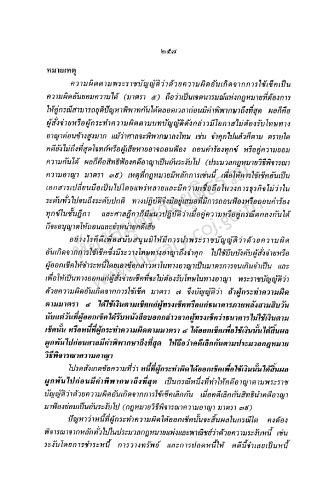 ๒๕๗
หมายเหตุ
ความผิดตามพระราชบัญญัติว่าด้วยความผิดอันเกิดจากการใช้เช็คเป็น
ความผิดอันยอมความได้ (มาตรา ๕) ถือว่าเป็นเจตนารมณ์แห่งกฎหมายที่ต้องการ
ให้คู่กรณีสามารถยุติปัญหาพิพาทกันได้ตลอดเวลาก่อนมีคำพิพากษาถึงที่สุด ผลก็คือ
ผู้สั่งจ่ายหรือผู้กระทำความผิดตามบทบัญญัติดังกล่าวมีโอกาสไม่ต้องรับโทษทาง
อาญาค่อนข้างสูงมาก แม้ว่าศาลจะพิพากษาลงโทษ เช่น จำคุกไปแล้วก็ตาม ตราบใด
คดียังไม่ถึงที่สุดโจทก์หรือผู้เสียหายอาจถอนฟ้อง ถอนคำร้องทุกข์ หรือคู่ความยอม
ความกันได้ ผลก็คือสิทธิฟ้องคดีอาญาเป็นอันระงับไป (ประมวลกฎหมายวิธีพิจารณา
ความอาญา มาตรา ๓๕) เหตุที่กฎหมายมีหลักการเช่นนี้ เพื่อให้การใช้เช็คอันเป็น
เอกสารเปลี่ยนมือเป็นไปโดยแพร่หลายและมีความเชื่อถือในวงการธุรกิจไม่ว่าใน
ระดับทั่วไปจนถึงระดับปกติ ทางปฏิบัติจึงมีอยู่เสมอที่มีการถอนฟ้องหรือถอนคำร้อง
ทุกข์ในชั้นฎีกา และศาลฎีกาก็มีแนวปฏิบัติว่าเมื่อคู่ความหรือคู่กรณีตกลงกันได้
ก็จะอนุญาตให้ถอนและจำหน่ายคดีเสีย
อย่างไรก็ดีเพื่อสนับสนุนมิให้มีการนำพระราชบัญญัติว่าด้วยความผิด
อันเกิดจากการใช้เช็คซึ่งมีระวางโทษทางอาญาถึงจำคุก ไปใช้บีบบังคับผู้สั่งจ่ายหรือ
ผู้ออกเช็คให้ชำระหนี้โดยอาศัยกล่าวหาในทางอาญาเป็นมาตรการจนเกินจำเป็น และ
เพื่อให้เปิดทางออกแก่ผู้สั่งจ่ายเช็คที่จะไม่ต้องรับโทษในทางอาญา พระราชบัญญัติว่า
ด้วยความผิดอันเกิดจากการใช้เช็ค มาตรา ๗ จึงบัญญัติว่า ถ้าผู้กระทำความผิด
ตามมาตรา ๔ ได้ใช้เงินตามเช็คแก่ผู้ทรงเช็คหรือแก่ธนาคารภายหลังสามสิบวัน
นับแต่วันที่ผู้ออกเช็คได้รับหนังสือบอกกล่าวจากผู้ทรงเช็คว่าธนาคารไม่ใช้เงินตาม
เช็คนั้น หรือหนี้ที่ผู้กระทำความผิดตามมาตรา ๔ ได้ออกเช็คเพื่อใช้เงินนั้นได้สิ้นผล
ผูกพันไปก่อนศาลมีคำพิพากษาถึงที่สุด ให้ถือว่าคดีเลิกกันตามประมวลกฎหมาย
วิธีพิจารณาความอาญา
โปรดสังเกตข้อความที่ว่า หนี้ที่ผู้กระทำผิดได้ออกเช็คเพื่อใช้เงินนั้นได้สิ้นผล
ผูกพันไปก่อนมีคำพิพากษาถึงที่สุด เป็นกรณีหนึ่งที่ทำให้คดีอาญาตามพระราช
บัญญัติว่าด้วยความผิดอันเกิดจากการใช้เช็คเลิกกัน เมื่อคดีเลิกกันสิทธินำคดีอาญา
มาฟ้องย่อมเป็นอันระงับไป (กฎหมายวิธีพิจารณาความอาญา มาตรา ๓๙)
ปัญหาว่าหนี้ที่ผู้กระทำความผิดได้ออกเช็คนั้นจะสิ้นผลในกรณีใด คงต้อง
พิจารณาจากหลักทั่วไปในประมวลกฎหมายแพ่งและพาณิชย์ว่าด้วยความระงับหนี้ เช่น
ระงับโดยการชำระหนี้ การวางทรัพย์ และการปลดหนี้ให้ คดีนี้จำเลยเป็นหนี้